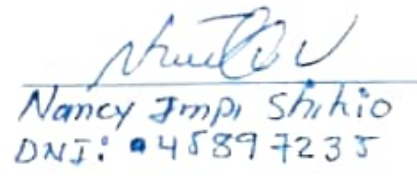 Nancy Impi Shihio
DNI: 45897235